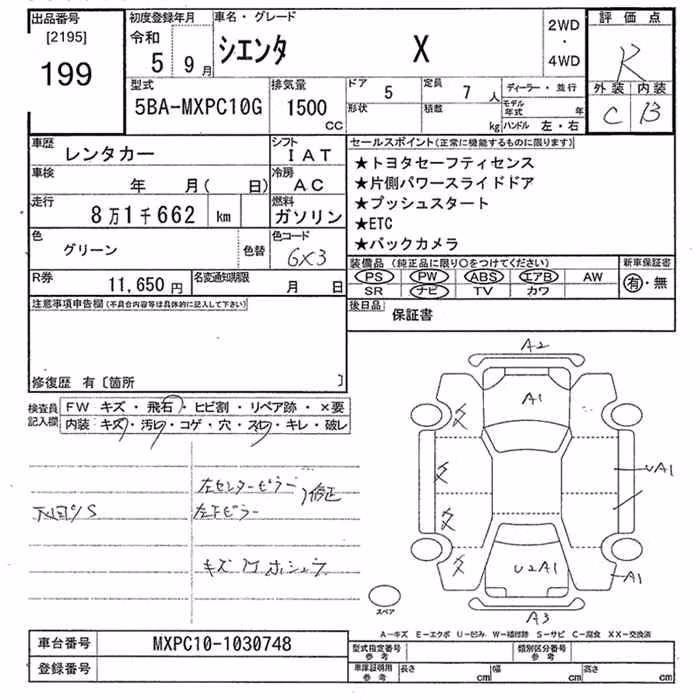 出品番号 初度登録年月 車名・グレード 2WD・4WD 評価点
[2195] 令和 5年 9月 シエンタ X R
199
型式 排気量 ドア 5 定員 7人 ディーラー・並行 外装 内装
5BA-MXPC10G 1500cc 形状 積載 kg モデル年式 年 ハンドル 左・右 C B
車歴 レンタカー シフト IAT
車検 年 月( 日) 冷房 AC
走行 8万1千662 km 燃料 ガソリン
色 グリーン 色替 色コード 6X3
R券 11,650円 名変通知期限 月 日
セールスポイント(正常に機能するものに限ります)
★トヨタセーフティセンス
★片側パワースライドドア
★プッシュスタート
★ETC
★バックカメラ
装備品 (純正品に限り○をつけてください) 新車保証書
PS PW ABS エアB AW 有・無
SR ナビ TV カワ
後日品 保証書
注意事項申告欄(不具合内容等は具体的に記入して下さい)
修復歴 有〔箇所 〕
検査員記入欄 FW キズ・飛石・ヒビ割・リペア跡・×要
内装 キズ・汚レ・コゲ・穴・スレ・キレ・破レ
左センターピラー
修正
下回り S
左ピラー
キズ
A2
A1
UA1
U2A1
A1
A3
スペア
A－キズ E－エクボ U－凹み W－補修跡 S－サビ C－腐食 XX－交換済
車台番号 MXPC10-1030748
登録番号
型式指定番号 参考 類別区分番号 参考
車庫証明用 参考 長さ cm 幅 cm 高さ cm